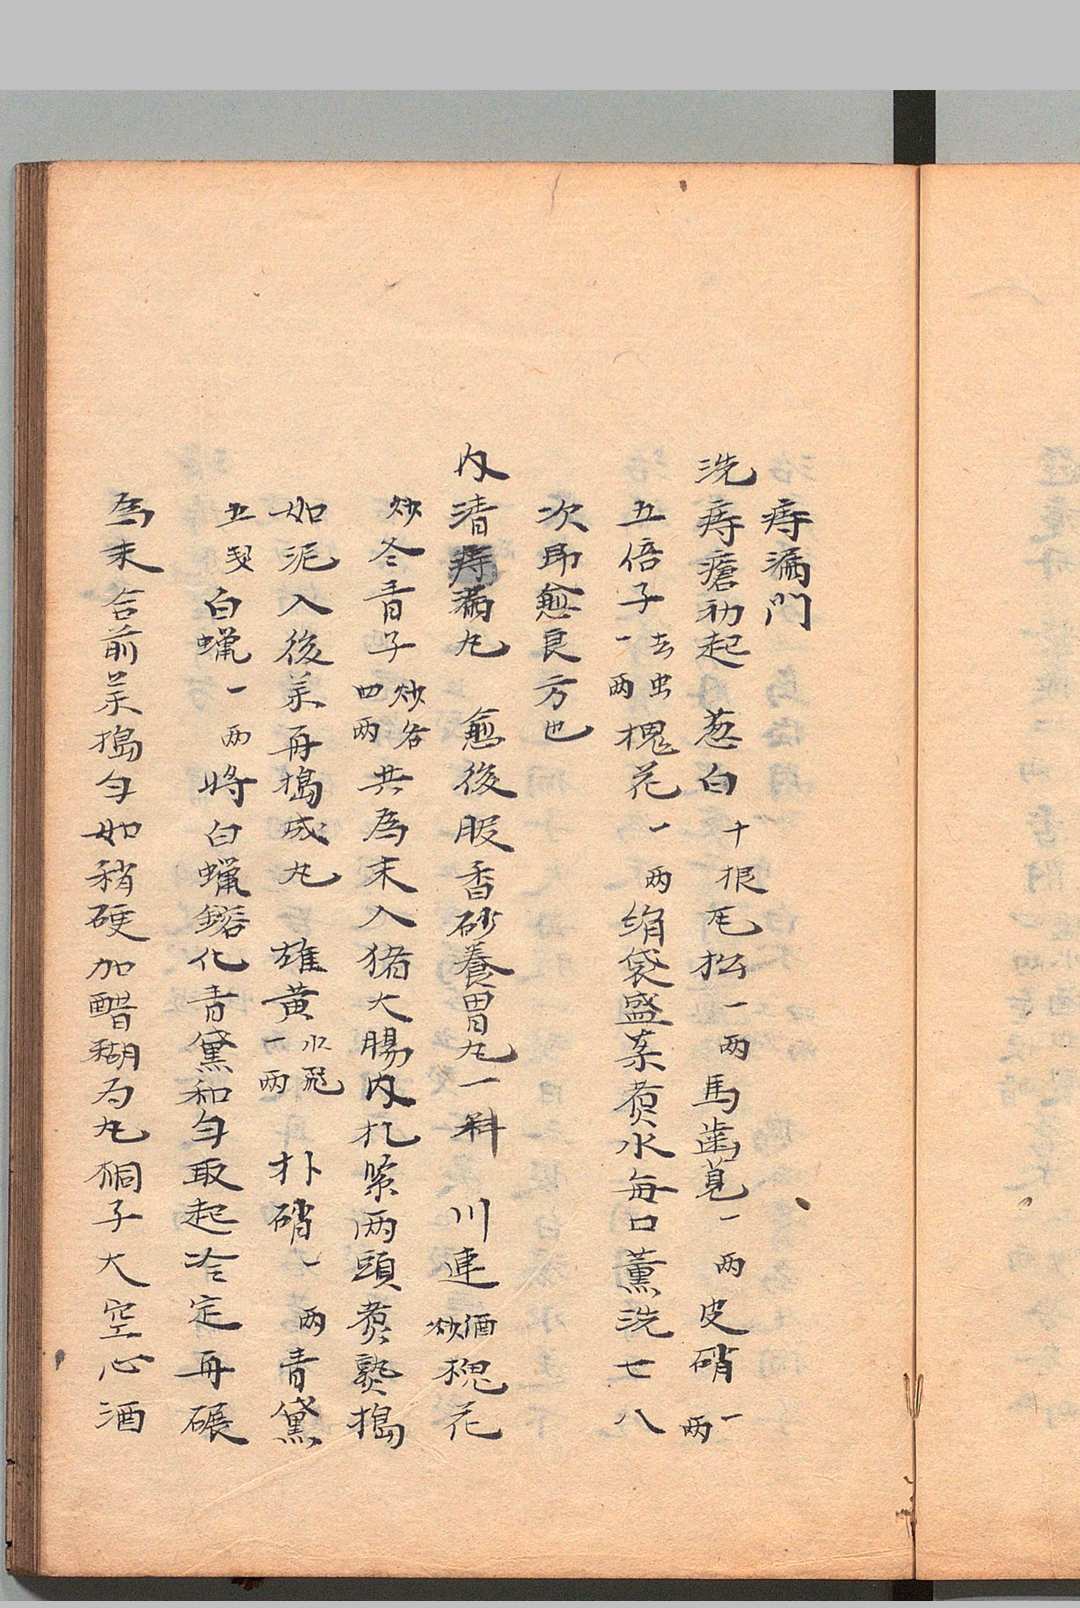 痔漏門
洗痔瘡初起 葱白十根瓦松一两馬歯莧一两皮硝一两
五倍子去虫一两槐花一两绢袋盛药煑水每日薫洗七八
次即愈良方也
内清痔漏丸 愈後服香砂養胃丸一料 川連酒炒槐花
炒冬青子炒各四两共為末入猪大腸内扎紧两頭煑熟搗
如泥入後药再搗成丸 雄黄水飛一两 朴硝一两青黛
五錢白蠟一两將白蠟鎔化青黛和匀取起冷定再碾
為末合前药搗匀如稍硬加醋糊為丸桐子大空心酒